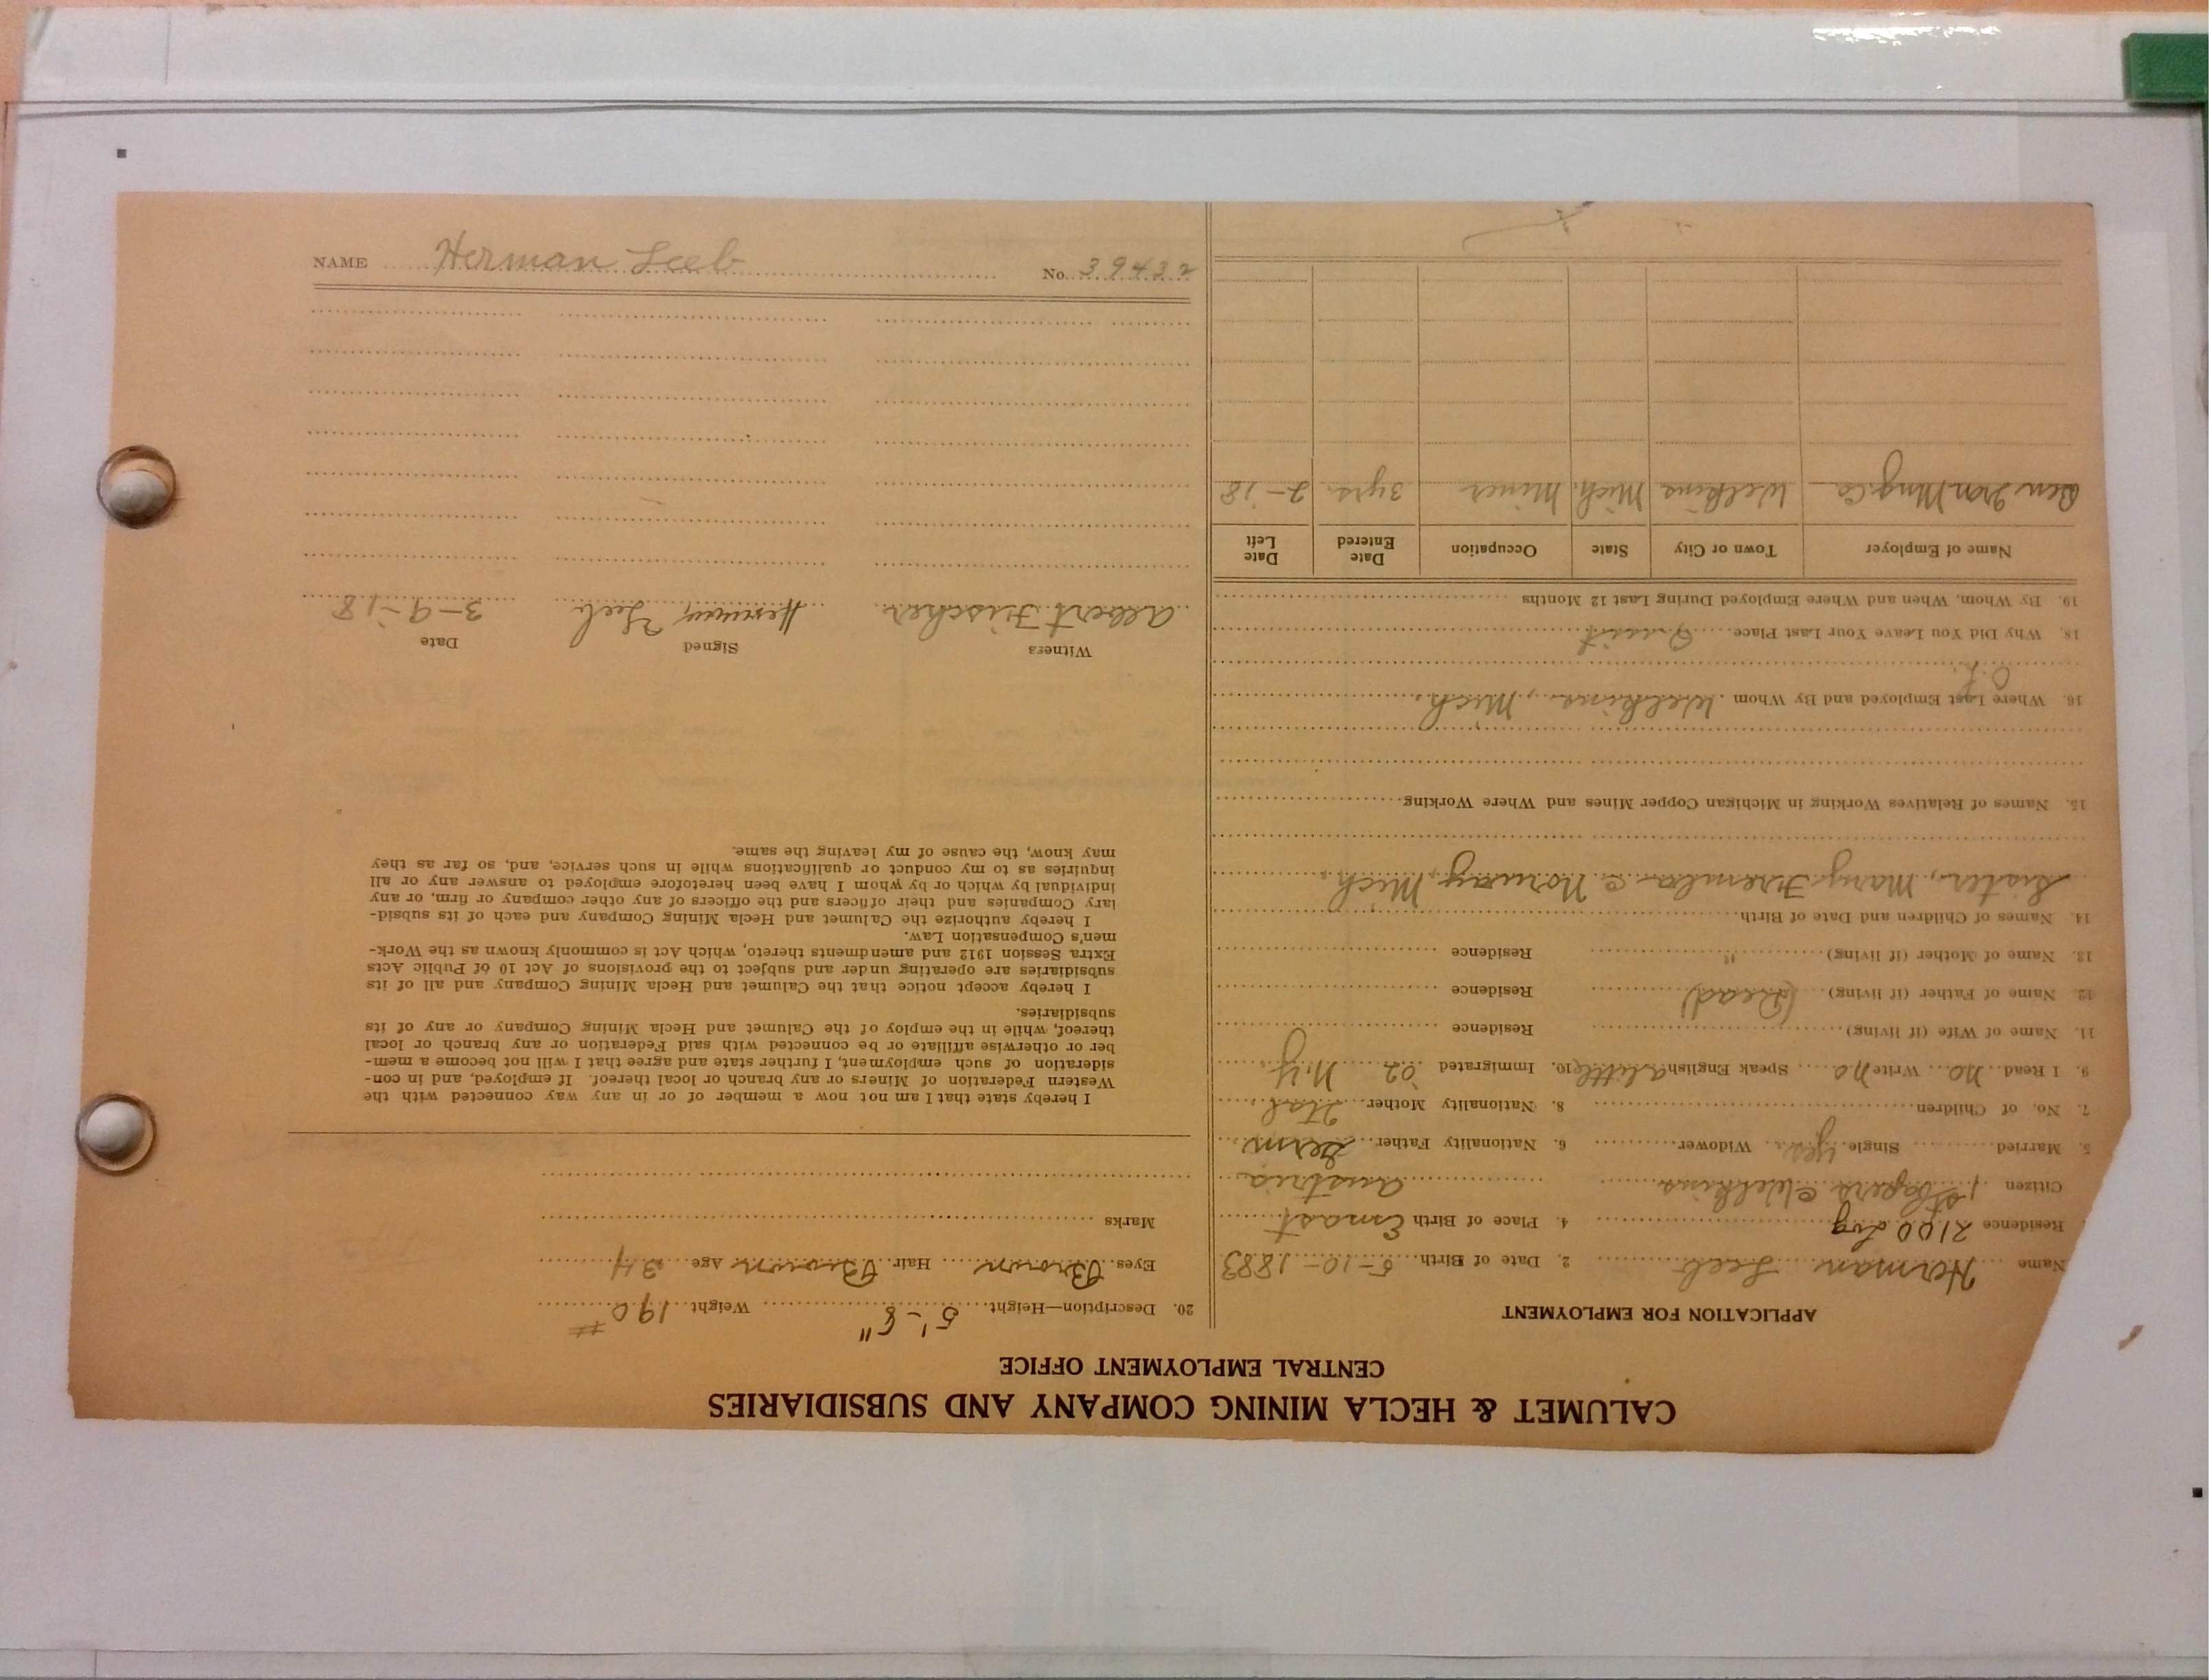 CALUMET & HECLA MINING COMPANY AND SUBSIDIARIES
CENTRAL EMPLOYMENT OFFICE
APPLICATION FOR EMPLOYMENT
Name Herman Leeb 2. Date of Birth 5-10-1883
Residence 2100 Log 4. Place of Birth
Citizen 1st Papers Austria
5. Married Single yes Widower 6. Nationality Father Germ
7. No. of Children 8. Nationality Mother Ital
9. I Read no Write no Speak English a little 10. Immigrated '02 N.Y.
11. Name of Wife (if living) Residence
12. Name of Father (if living) (Dead) Residence
13. Name of Mother (if living) " Residence
14. Names of Children and Date of Birth
Sister, Mary Norway, Mich.
15. Names of Relatives Working in Michigan Copper Mines and Where Working
16. Where Last Employed and By Whom Mich.
18. Why Did You Leave Your Last Place Quit
19. By Whom, When and Where Employed During Last 12 Months
Name of Employer Town or City State Occupation Date Entered Date Left
Iron Mng. Co. Mich. Miner 3 yrs. 2-18
20. Description—Height 5'-8" Weight 190#
Eyes Brown Hair Brown Age 34
Marks
I hereby state that I am not now a member of or in any way connected with the
Western Federation of Miners or any branch or local thereof. If employed, and in con-
sideration of such employment, I further state and agree that I will not become a mem-
ber or otherwise affiliate or be connected with said Federation or any branch or local
thereof, while in the employ of the Calumet and Hecla Mining Company or any of its
subsidiaries.
I hereby accept notice that the Calumet and Hecla Mining Company and all of its
subsidiaries are operating under and subject to the provisions of Act 10 of Public Acts
Extra Session 1912 and amendments thereto, which Act is commonly known as the Work-
men's Compensation Law.
I hereby authorize the Calumet and Hecla Mining Company and each of its subsid-
iary Companies and their officers and the officers of any other company or firm, or any
individual by which or by whom I have been heretofore employed to answer any or all
inquiries as to my conduct or qualifications while in such service, and, so far as they
may know, the cause of my leaving the same.
Witness Signed Date
Albert Fischer Herman Leeb 3-9-18
NAME Herman Leeb No. 39432